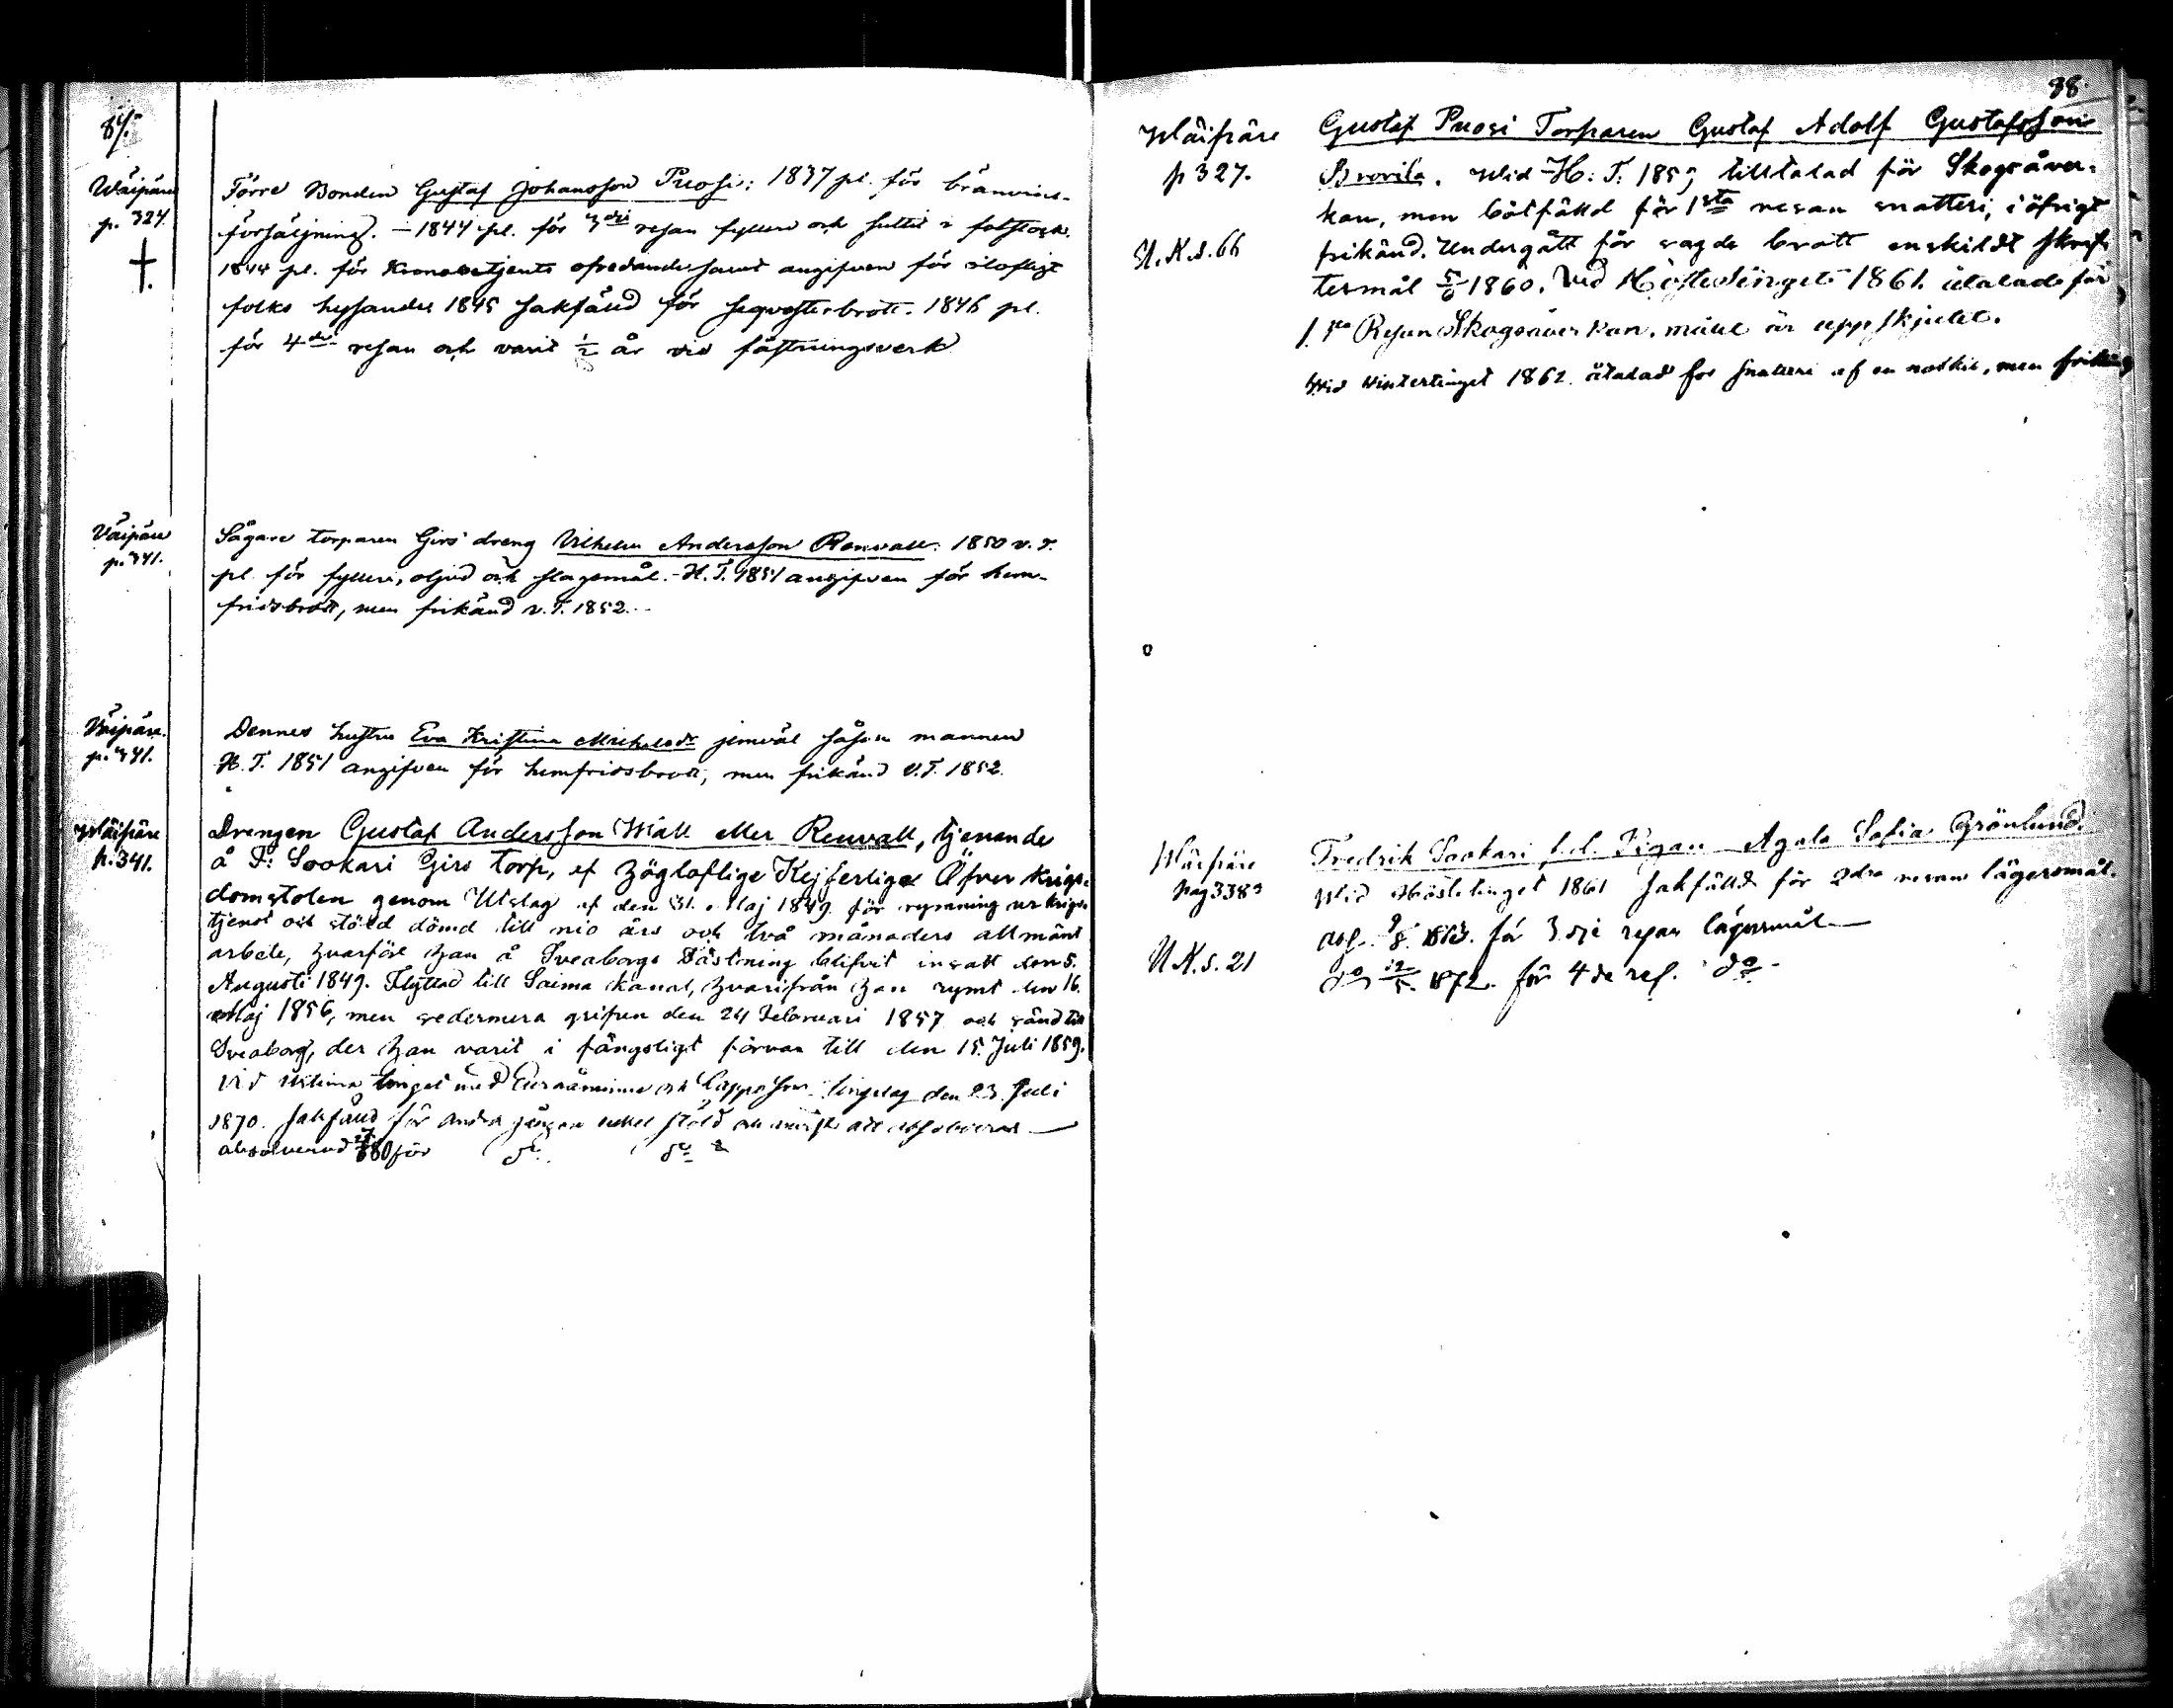 87.
Wäipäre
p. 327.
†.
Förre Bonden Gustaf Johansson Puosi: 1837 pl. för bränvins-
försäljning. – 1844 pl. för 3dje resan fylleri och suttit i fotstock.
1844 pl. för Kronobetjents ofredande samt angifven för olofligt
folks hysande; 1845 sakfäld för seqvesterbrott. 1846 pl.
för 4de resan och varit ½ år vid fästningsverk
Väipäre
p. 341.
Sågare torparen Girs dreng Vilhelm Andersson Renvall: 1850 v.T.
pl. för fylleri, oljud och slagsmål. – H.T. 1851 angifven för hem-
fridsbrott, men frikänd v.T. 1852.
Väipäre.
p. 341.
Dennes hustru Eva Kristina Michelsdr jemväl såsom mannen
H.T. 1851 angifven för hemfridsbrott, men frikänd V.T. 1852.
Wäipäre
p. 341.
Drengen Gustaf Andersson Wiall eller Renvall, tjenande
å F: Sookari Girs torp, af Högloflige Kejserliga Öfver krigs-
domstolen genom Utslag af den 31. Maj 1849 för rymning ur krigs-
tjenst och stöld dömd till nio års och två månaders allmänt
arbete, hvarföre han å Sveaborgs Fästning blifvit insatt den 5.
Augusti 1849. Flyttad till Saima kanal, hvarifrån han rymt den 16.
Maj 1856, men sedermera gripen den 24 Februari 1857 och sänd till
Sveaborg, der han varit i fängsligt förvar till den 15. Juli 1859.
Vid tinget med Euraåminne och Lappo tingslag den 23. Juli
1870. sakfäld för andra gången enkel stöld och att absolveras
absolverad 1880 för do do
88.
Wäipäre
p 327.
N.K.s. 66
Gustaf Puosi Torparen Gustaf Adolf Gustafsson
Brovila. Wid H: T: 1859 tilltalad för Skogsåver-
kan, men bötfälld för 1sta resan snatteri, i öfrigt
frikänd. Undergått för sagde brott enskildt skrif-
termål 5/6 1860. Vid Höstetinget 1861. åtalad för
1sta Resan Skogsåverkan, målet är uppskjutet.
Wid Wintertinget 1862. åtalad för snatteri af en notkil, men frikänd
Wäipäre
pag 338
N.K.s. 21
Fredrik Sookari f.d. Pigan Agata Sofia Grönlund.
Wid Höstetinget 1861 sakfälld för 2dra resans lägersmål.
abs. 9/8. 1863. för 3dje resan lägersmål —
do 12/5. 1872. för 4de res. do –